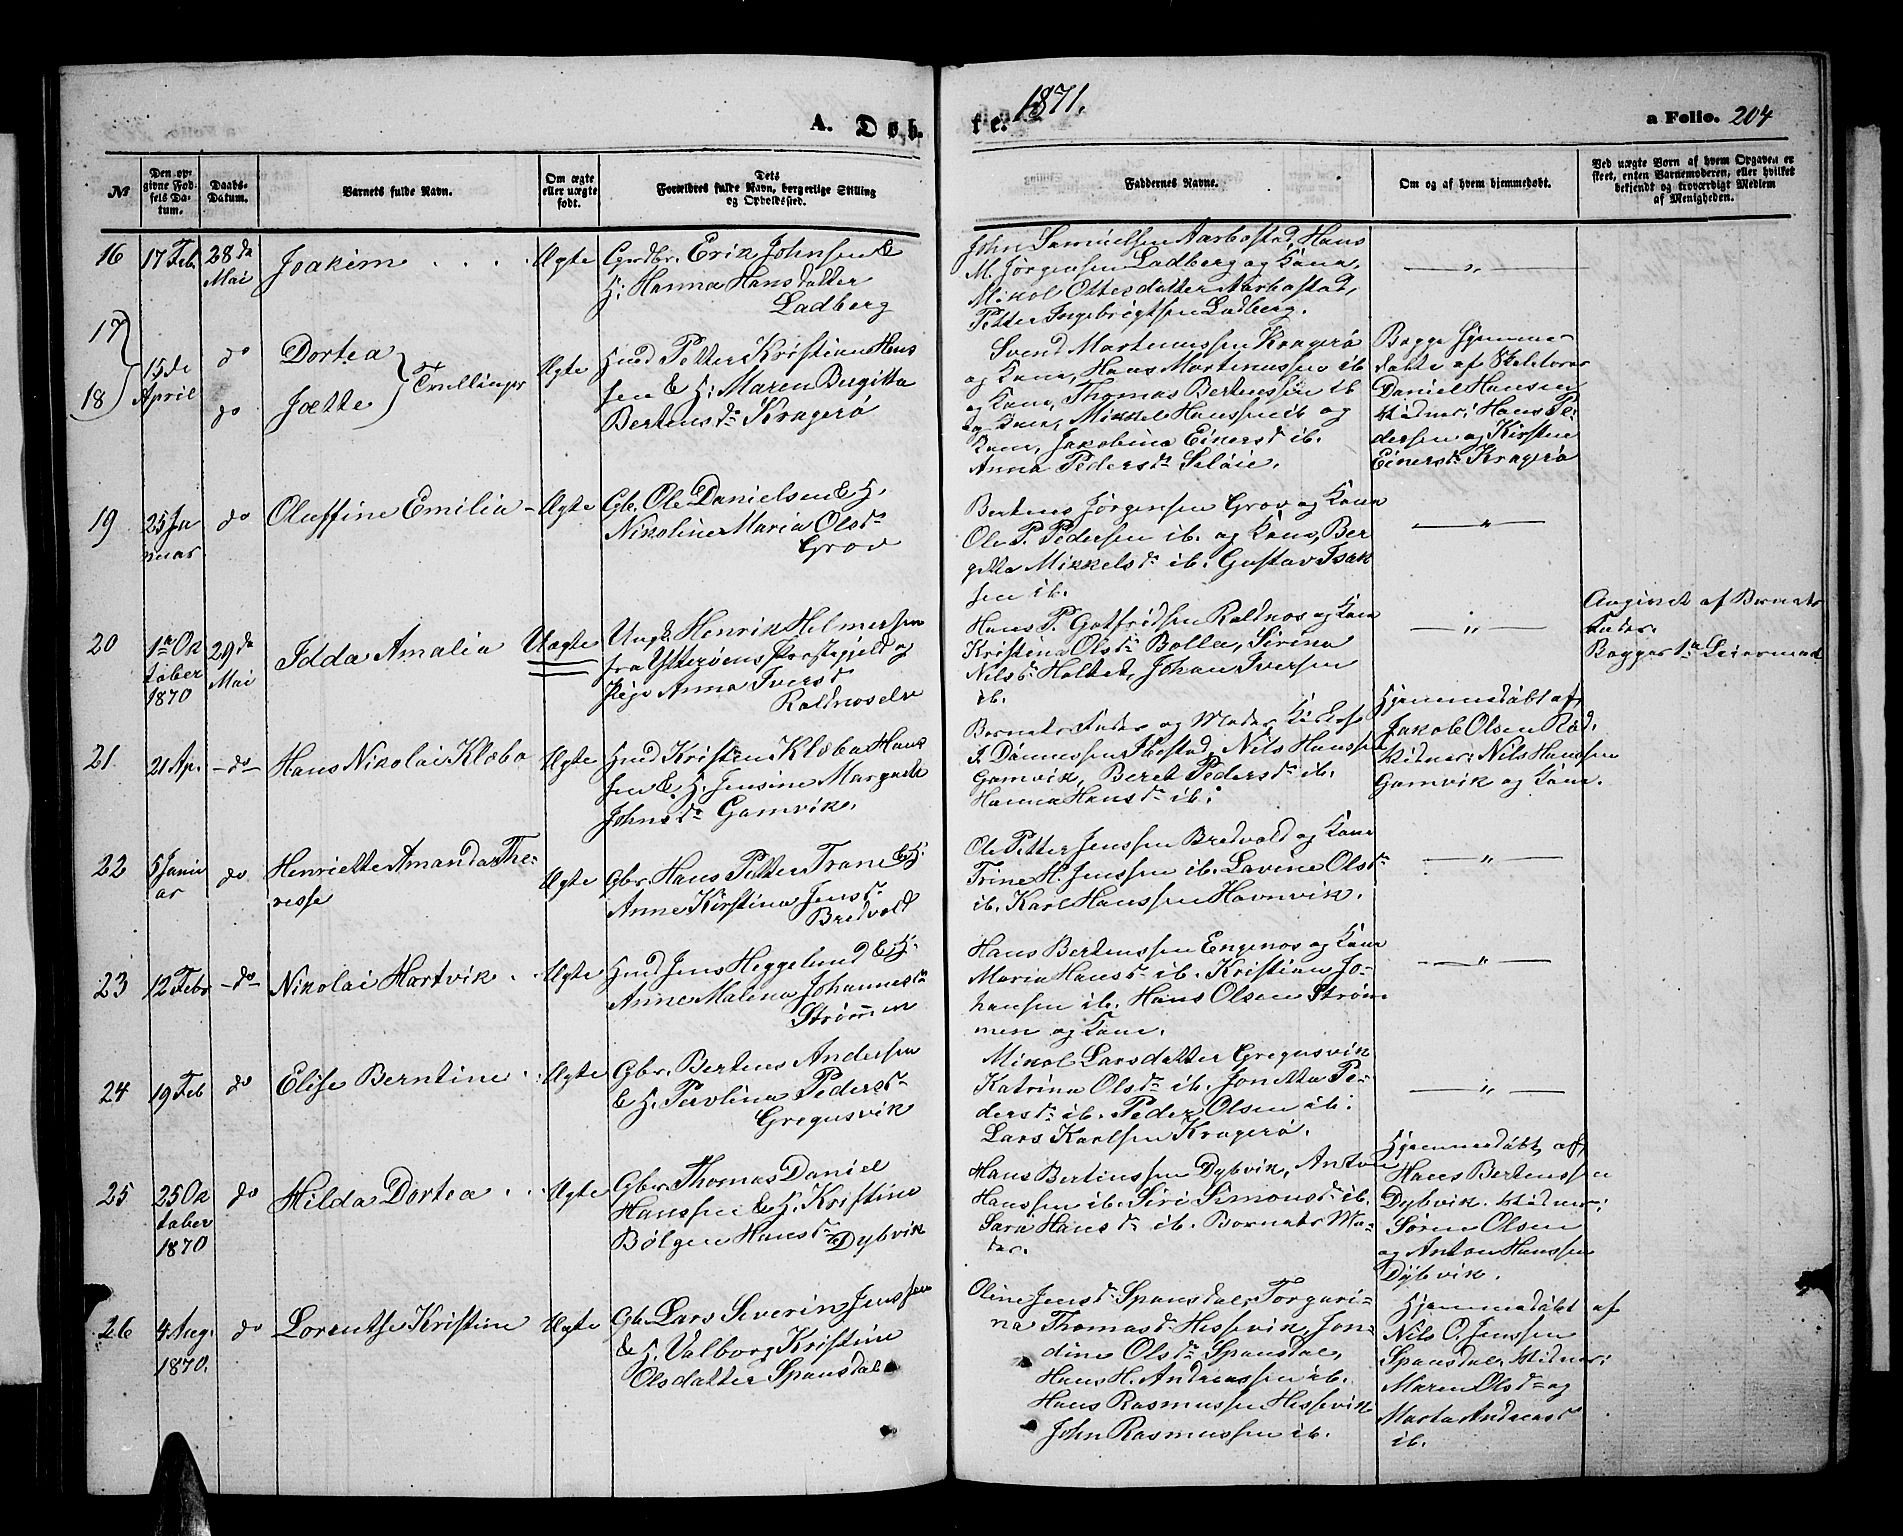 A. Døb
te. 1871.
a Folio. 204
№
Den op-
givne Fød-
sels Da-
tum.
Daabs-
Datum.
Barnets fulde Navn.
Om ægte
eller uægte
født.
Dets
Forældres fulde Navn, borgerlige Stilling
og Opholdssted.
Faddernes Navne.
Om og af hvem hjemmedøbt.
Ved uægte Børn af hvem Opgaven er
skeet, enten Barnemoderen, eller hvilket
bekjendt og troværdigt Medlem
af Menigheden.
16
17 Feb.
28de
Mai
Joakim
Ægte
Gaardbr. Erik Johnsen &
H: Hanna Hansdatter
Ladberg
John Samuelsen Aarbostad, Hans
M. Jørgensen Ladberg og Kone,
Mikol Ottesdatter Aarbostad,
Petter Ingebrigtsen Ladberg.
— " —
17
18
15de
April
do
do
Dortea
Joette
Tvillinger
Ægte
Hmd Petter Kristian Hans
sen & H: Maren Bergitta
Bertensdr Kragerø
Svend Martinussen Kragerø
og Kone, Hans Martinussen ib
og Kone, Thomas Bertenssen ib
og Kone, Mikkel Hanssen ib og
Kone, Jakobina Einersd ib.
Anna Pedersdr Seløie.
Begge Hjemme
døbte af Skolelærer
Daniel Hansen
Vidner: Hans Pe-
dersen og Kirsten
Einersdr Kragerø
19
25 Ja
nuar
do
Oluffine Emilia
Ægte
Gb. Ole Danielsen & H.
Nikoline Maria Olsdr
Grov
Bertens Jørgensen Grov og Kone
Ole P. Pedersen ib. og Kone, Ber
gitta Mikkelsdr ib. Gustav Isak
sen ib.
— " —
20
1ste Ok
tober
1870
29de
Mai
Idda Amalia
Uægte
Ungk. Henrik Helmersen
fra Ytterøens Præstegjeld og
Pige Anna Iversdr
Roldnoselv
Hans P. Gotfridsen Roldnos og Kone
Kristina Olsdr Bolla, Sirina
Nilsdr Holtet, Johan Iversen
ib.
— " —
Angivet af Barnets
Fader.
Begges 1ste Leiermaal
21.
21 Ap.
do
Hans Nikolai Klæbo
Ægte
Hmd Kristen Klæbo Hans
sen & H. Jensine Margrete
Johnsdr Gamvik.
Barnets Fader og Moder,
J. Dønnessen Ibestad, Nils Hanssen
Gamvik, Beret Pedersdr ib.
Hanna Hansdr ib.
Hjemmedøbt af
Jakob Olsen Rød.
Vidner: Nils Hanssen
Gamvik og Kone.
22
5 Janu
ar
do
Henriette Amanda The-
resse
Ægte
Gbr. Hans Petter Trane & H.
Anne Kirstina Jensdr
Bredvold
Ole Petter Jenssen Bredvold og Kone
Trine H. Jenssen ib. Lavine Olsdr
ib. Karl Hanssen Havnvik.
— " —
23
12 Febr
do
Nikolai Hartvik
Ægte
Hmd Jens Heggelund & H.
Anne Malena Johannesdr
Strømmen
Hans Bertenssen Engenos og Kone
Maria Hansdr ib. Kristian Jo-
hansen ib. Hans Olsen Strøm
men og Kone.
— " —
24
19 Feb
do
Elise Berntine
Ægte
Gbr. Bertens Andersen
& H. Perolina Pedersdr
Gregusvik
Mikol Larsdatter Gregusvik
Katrina Olsdr ib. Jonetta Pe-
dersdr ib. Peder Olsen ib.
Lars Karlsen Kragerø.
— " —
25
25 Ok
tober
1870
do
Hilda Dortea
Ægte
Gbr. Thomas Daniel
Hanssen & H. Kristine
Bølgen Hansdr Dybvik
Hans Bertinssen Dybvik, Anton
Hanssen ib. Siri Simonsdr ib.
Sara Hansdr ib. Barnets Mo-
der.
Hjemmedøbt af
Hans Bertenssen
Dybvik. Vidner:
Søren Olsen
og Anton Hanssen
Dybvik.
26
4 Aug.
1870.
do
Lorentse Kristine
Ægte
Gb. Lars Severin Jenssen
& H. Valborg Kristine
Olsdatter Spansdal
Oline Jensdr Spansdal, Torgari-
na Thomasdr Hessevik, Jon-
dine Olsdr Spansdal,
Hans H. Andreassen ib.
Hans Rasmussen Hessevik
John Rasmussen ib.
Hjemmedøbt af
Nils O. Jenssen
Spansdal, Vidner:
Maren Olsdr og
Marta Andreasdr
ib.